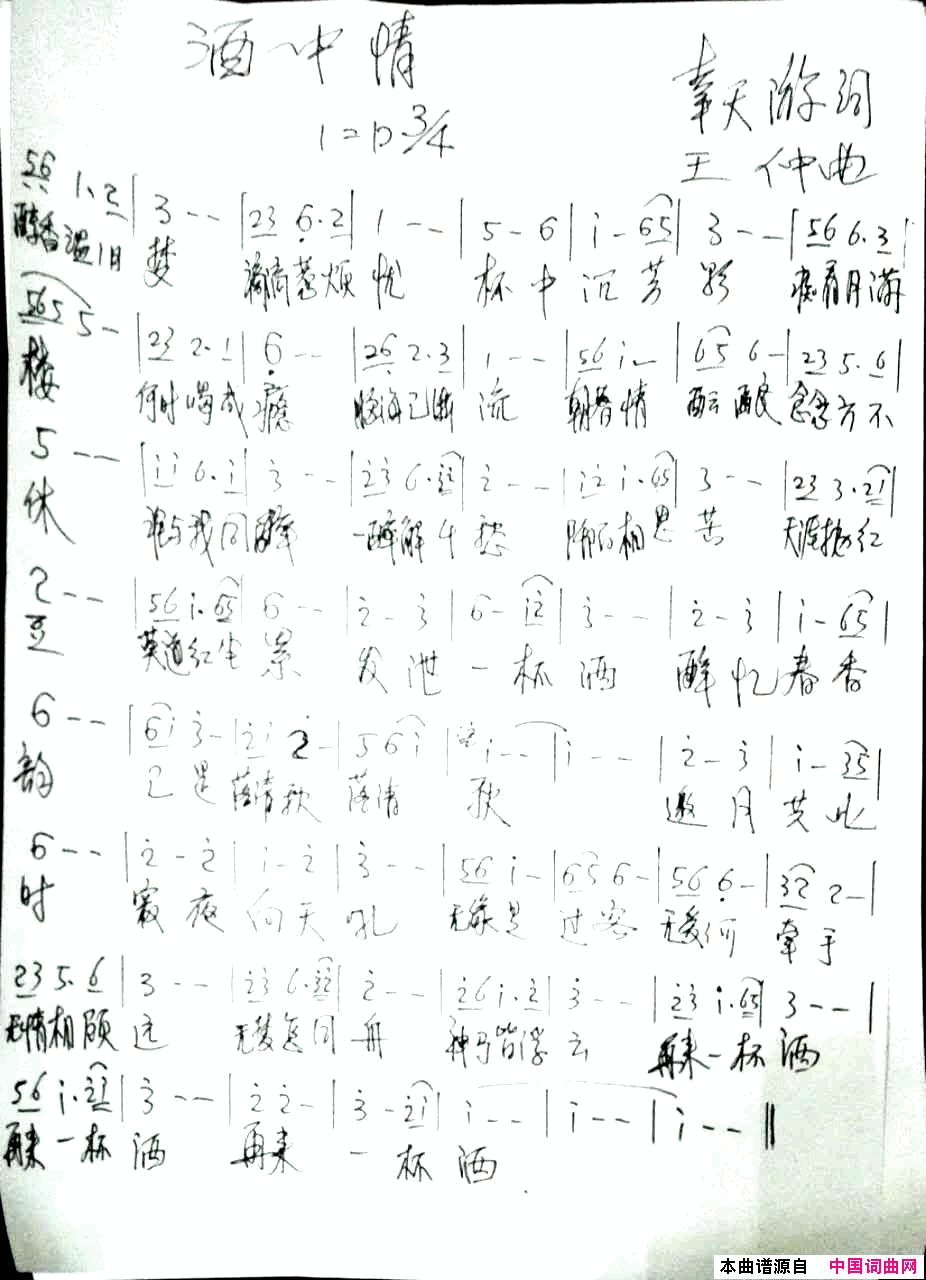 酒中情
1=D 3/4
奉天游词
王 仲曲
56 1·2 | 3 - - | 23 6·2 | 1 - - | 5 - 6 | i - 65 | 3 - - | 56 6·3 |
醇香温旧 梦 烦 忧 杯 中 沉 芳 影 痴看月满
565 5 - | 23 2·1 | 6 - - | 26 2·3 | 1 - - | 56 i - | 65 6 - | 23 5·6 |
楼 何时喝成 瘾 已断 流 朝暮情 酝酿 方不
5 - - | ii 6·i | 3 - - | 23 6·32 | 2 - - | i2 i·65 | 3 - - | 23 3·2i |
休 谁与我同醉 一醉解千愁 相思 苦 天涯 红
2 - - | 56 i·65 | 6 - - | 2 - 3 | 6 - i2 | 3 - - | 2 - 3 | i - 65 |
豆 莫道红尘 累 发 泄 一 杯 酒 醉 忆 春 香
6 - - | 6i 3 - | 2i 2 - | 5 6i | i - - | i - - | 2 - 3 | i - 35 |
韵 已是 落清秋 落清 秋 邀 月 共 此
6 - - | 2 - 2 | i - 2 | 3 - - | 56 i - | 65 6 - | 56 6 - | 32 2 - |
时 寂 夜 向 天 吼 无缘是 过客 无爱何 牵手
23 5·6 | 3 - - | 23 6·32 | 2 - - | 26 i·2 | 3 - - | 23 i·65 | 3 - - |
无情相顾 远 无梦怎同 舟 神马皆浮 云 再来一杯 酒
56 i·2i | 3 - - | 2 2 - | 3 - 2i | i - - | i - - | i - - ‖
再来一杯 酒 再来 一 杯 酒
本曲谱源自 中国词曲网